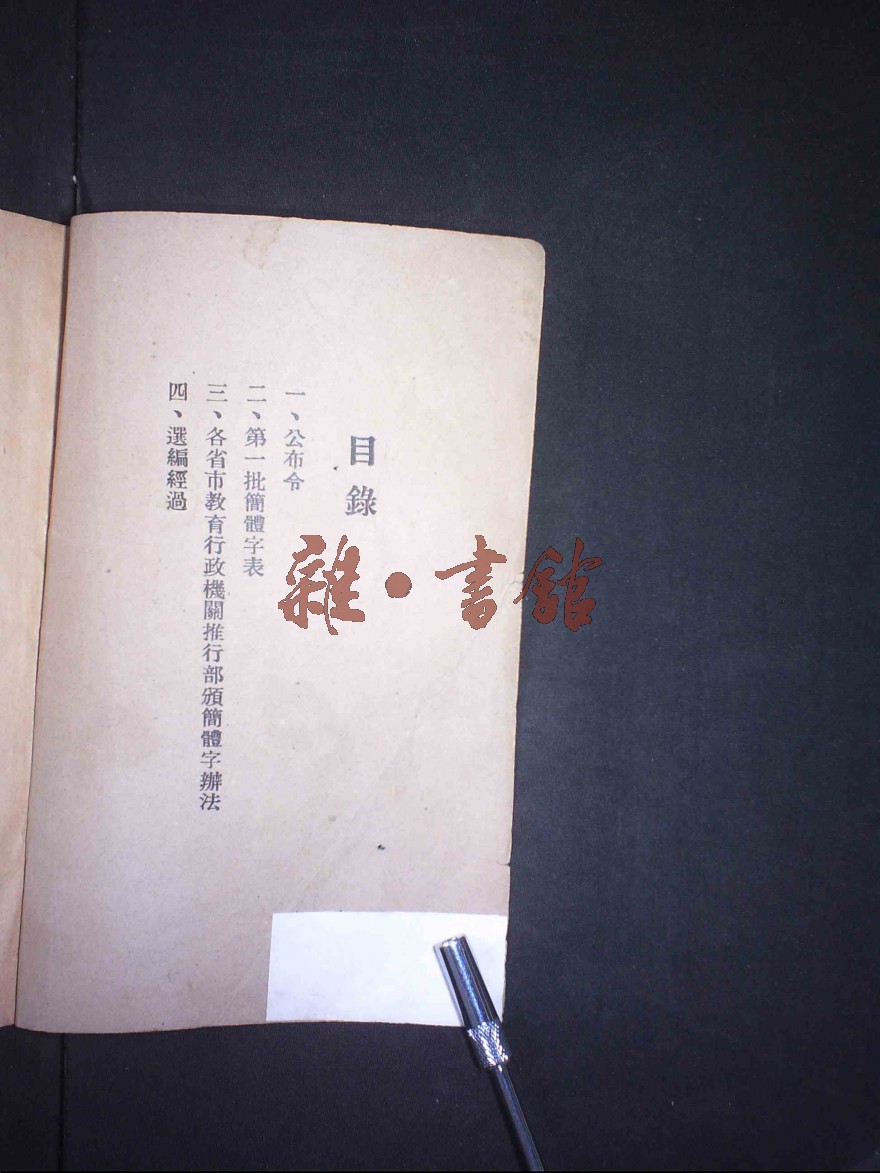 目錄
一、公布令
二、第一批簡體字表
三、各省市教育行政機關推行部頒簡體字辦法
四、選編經過
雜·書館